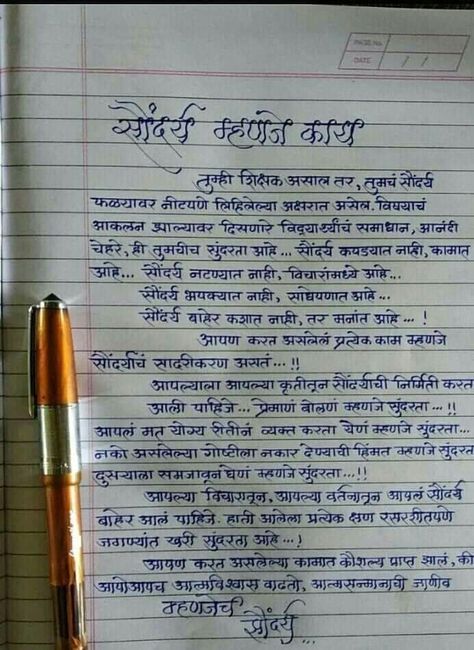 PAGE No.
DATE / /
सौंदर्य म्हणजे काय
तुम्ही शिक्षक असाल तर, तुमचं सौंदर्य
फळ्यावर नीटपणे लिहिलेल्या अक्षरात असेल. विषयाचं
आकलन झाल्यावर दिसणारे विद्यार्थ्यांचं समाधान, आनंदी
चेहरे, ही तुमचीच सुंदरता आहे... सौंदर्य कपड्यात नाही, कामात
आहे... सौंदर्य नटण्यात नाही, विचारांमध्ये आहे...
सौंदर्य भपक्यात नाही, साधेपणात आहे...
सौंदर्य बाहेर कशात नाही, तर मनांत आहे...!
आपण करत असलेलं प्रत्येक काम म्हणजे
सौंदर्याचं सादरीकरण असतं...!!
आपल्याला आपल्या कृतीतून सौंदर्याची निर्मिती करता
आली पाहिजे... प्रेमानं बोलणं म्हणजे सुंदरता...!!
आपलं मत योग्य रीतीनं व्यक्त करता येणं म्हणजे सुंदरता...
नको असलेल्या गोष्टीला नकार देण्याची हिंमत म्हणजे सुंदरता
दुसऱ्याला समजावून घेणं म्हणजे सुंदरता...!!
आपल्या विचारातून, आपल्या वर्तनातून आपलं सौंदर्य
बाहेर आलं पाहिजे. हाती आलेला प्रत्येक क्षण रसरशीतपणे
जगण्यांत खरी सुंदरता आहे...!
आपण करत असलेल्या कामात कौशल्य प्राप्त झालं, की
आपोआपच आत्मविश्वास वाढतो, आत्मसन्मानाची जाणीव
म्हणजेच
सौंदर्य...